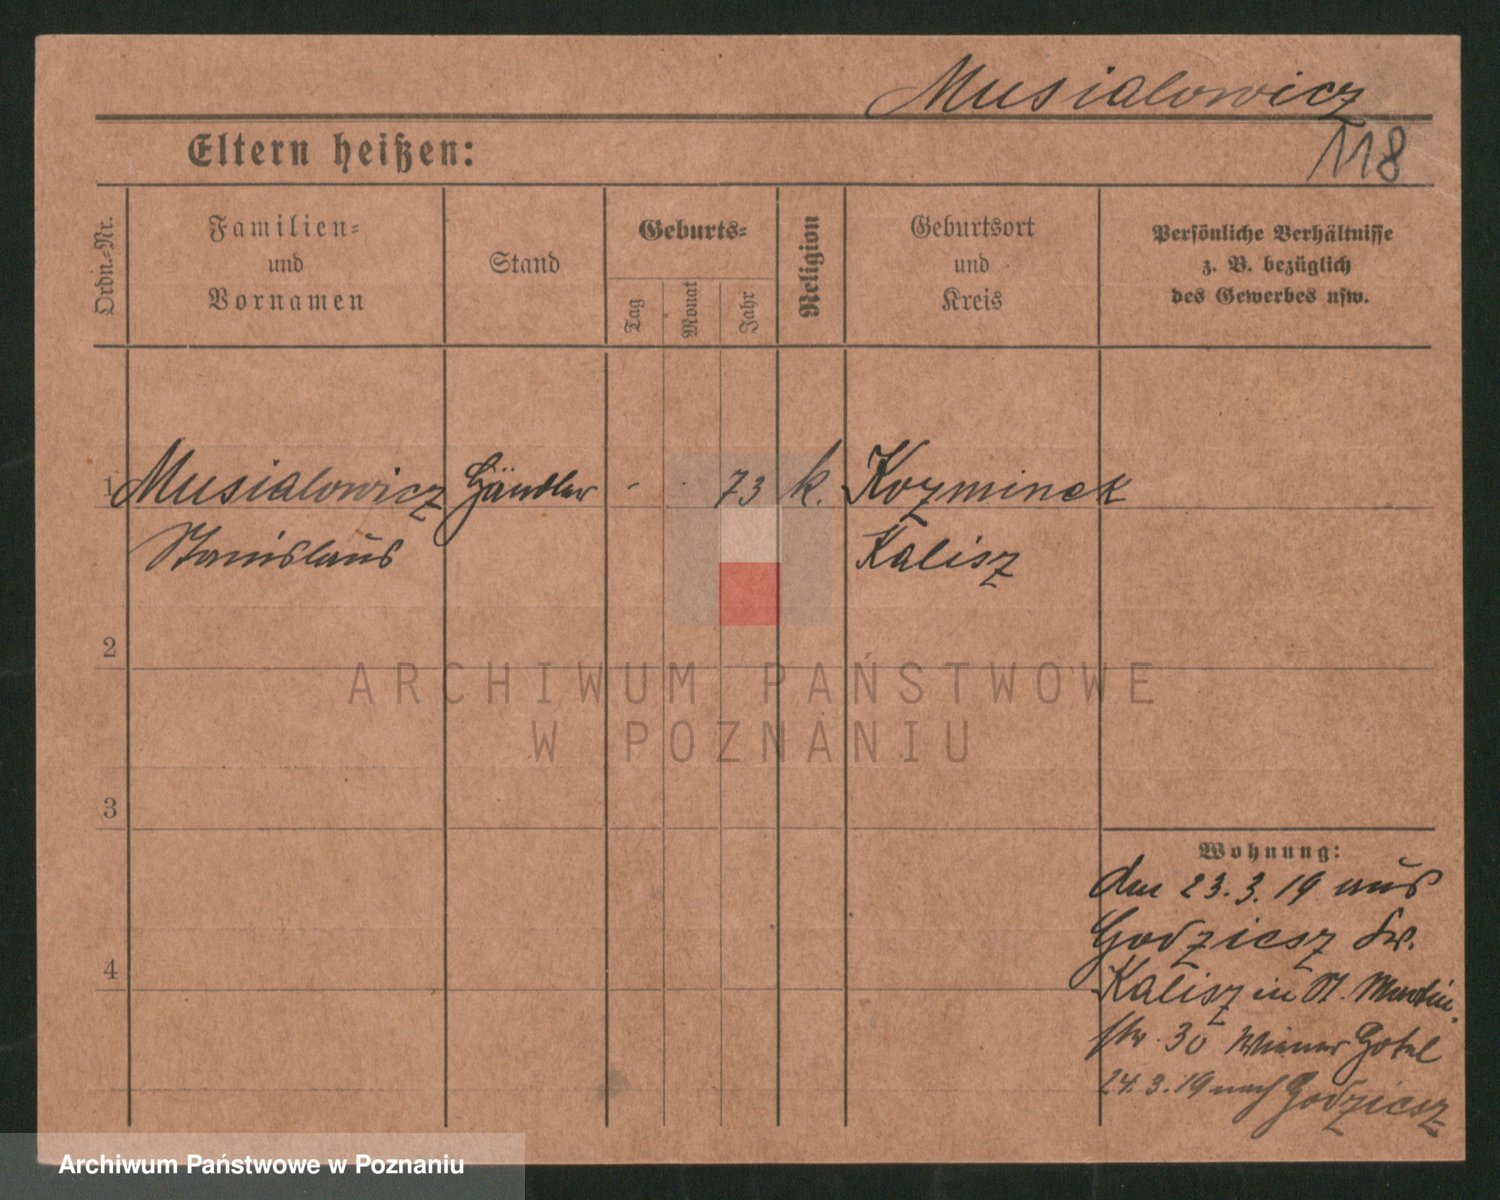 Musialowicz
118
Eltern heißen:
Ordn.-Nr.
Familien-
und
Vornamen
Stand
Geburts-
Tag
Monat
Jahr
Religion
Geburtsort
und
Kreis
Persönliche Verhältnisse
z. B. bezüglich
des Gewerbes usw.
1 Musialowicz Händler - - 73 k. Kozminek
Stanislaus Kalisz
2
3
4
Wohnung:
den 23.3.19 aus
Godziesz Kr.
Kalisz in St. Martin
str. 30 Wiener Hotel
24.3.19 nach Godziesz
ARCHIWUM PAŃSTWOWE
W POZNANIU
Archiwum Państwowe w Poznaniu